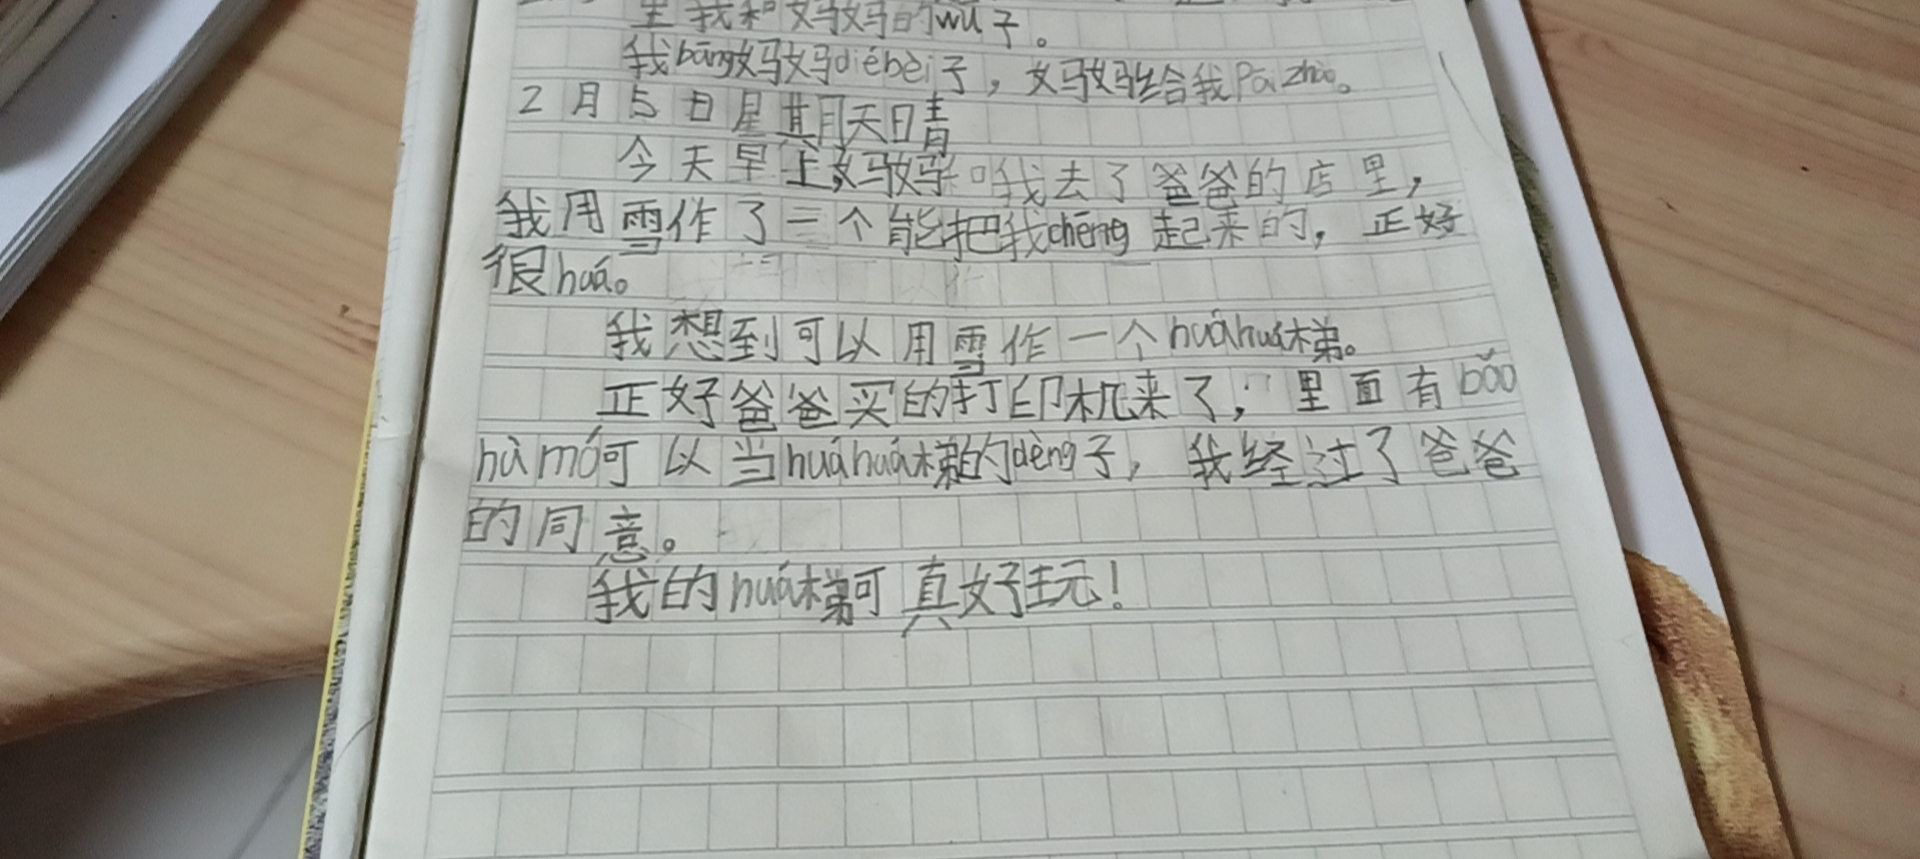 里我和妈妈的wū子。
我bāng妈妈diébèi子，妈妈给我Pāizhào。
2月5日星期天晴
今天早上妈妈和我去了爸爸的店里，
我用雪作了三个能把我chēng起来的，正好
很huá。
我想到可以用雪作一个huáhuá梯。
正好爸爸买的打印机来了，里面有bǎo
hù mó可以当huáhuá梯的dèng子，我经过了爸爸
的同意。
我的huá梯可真好玩！